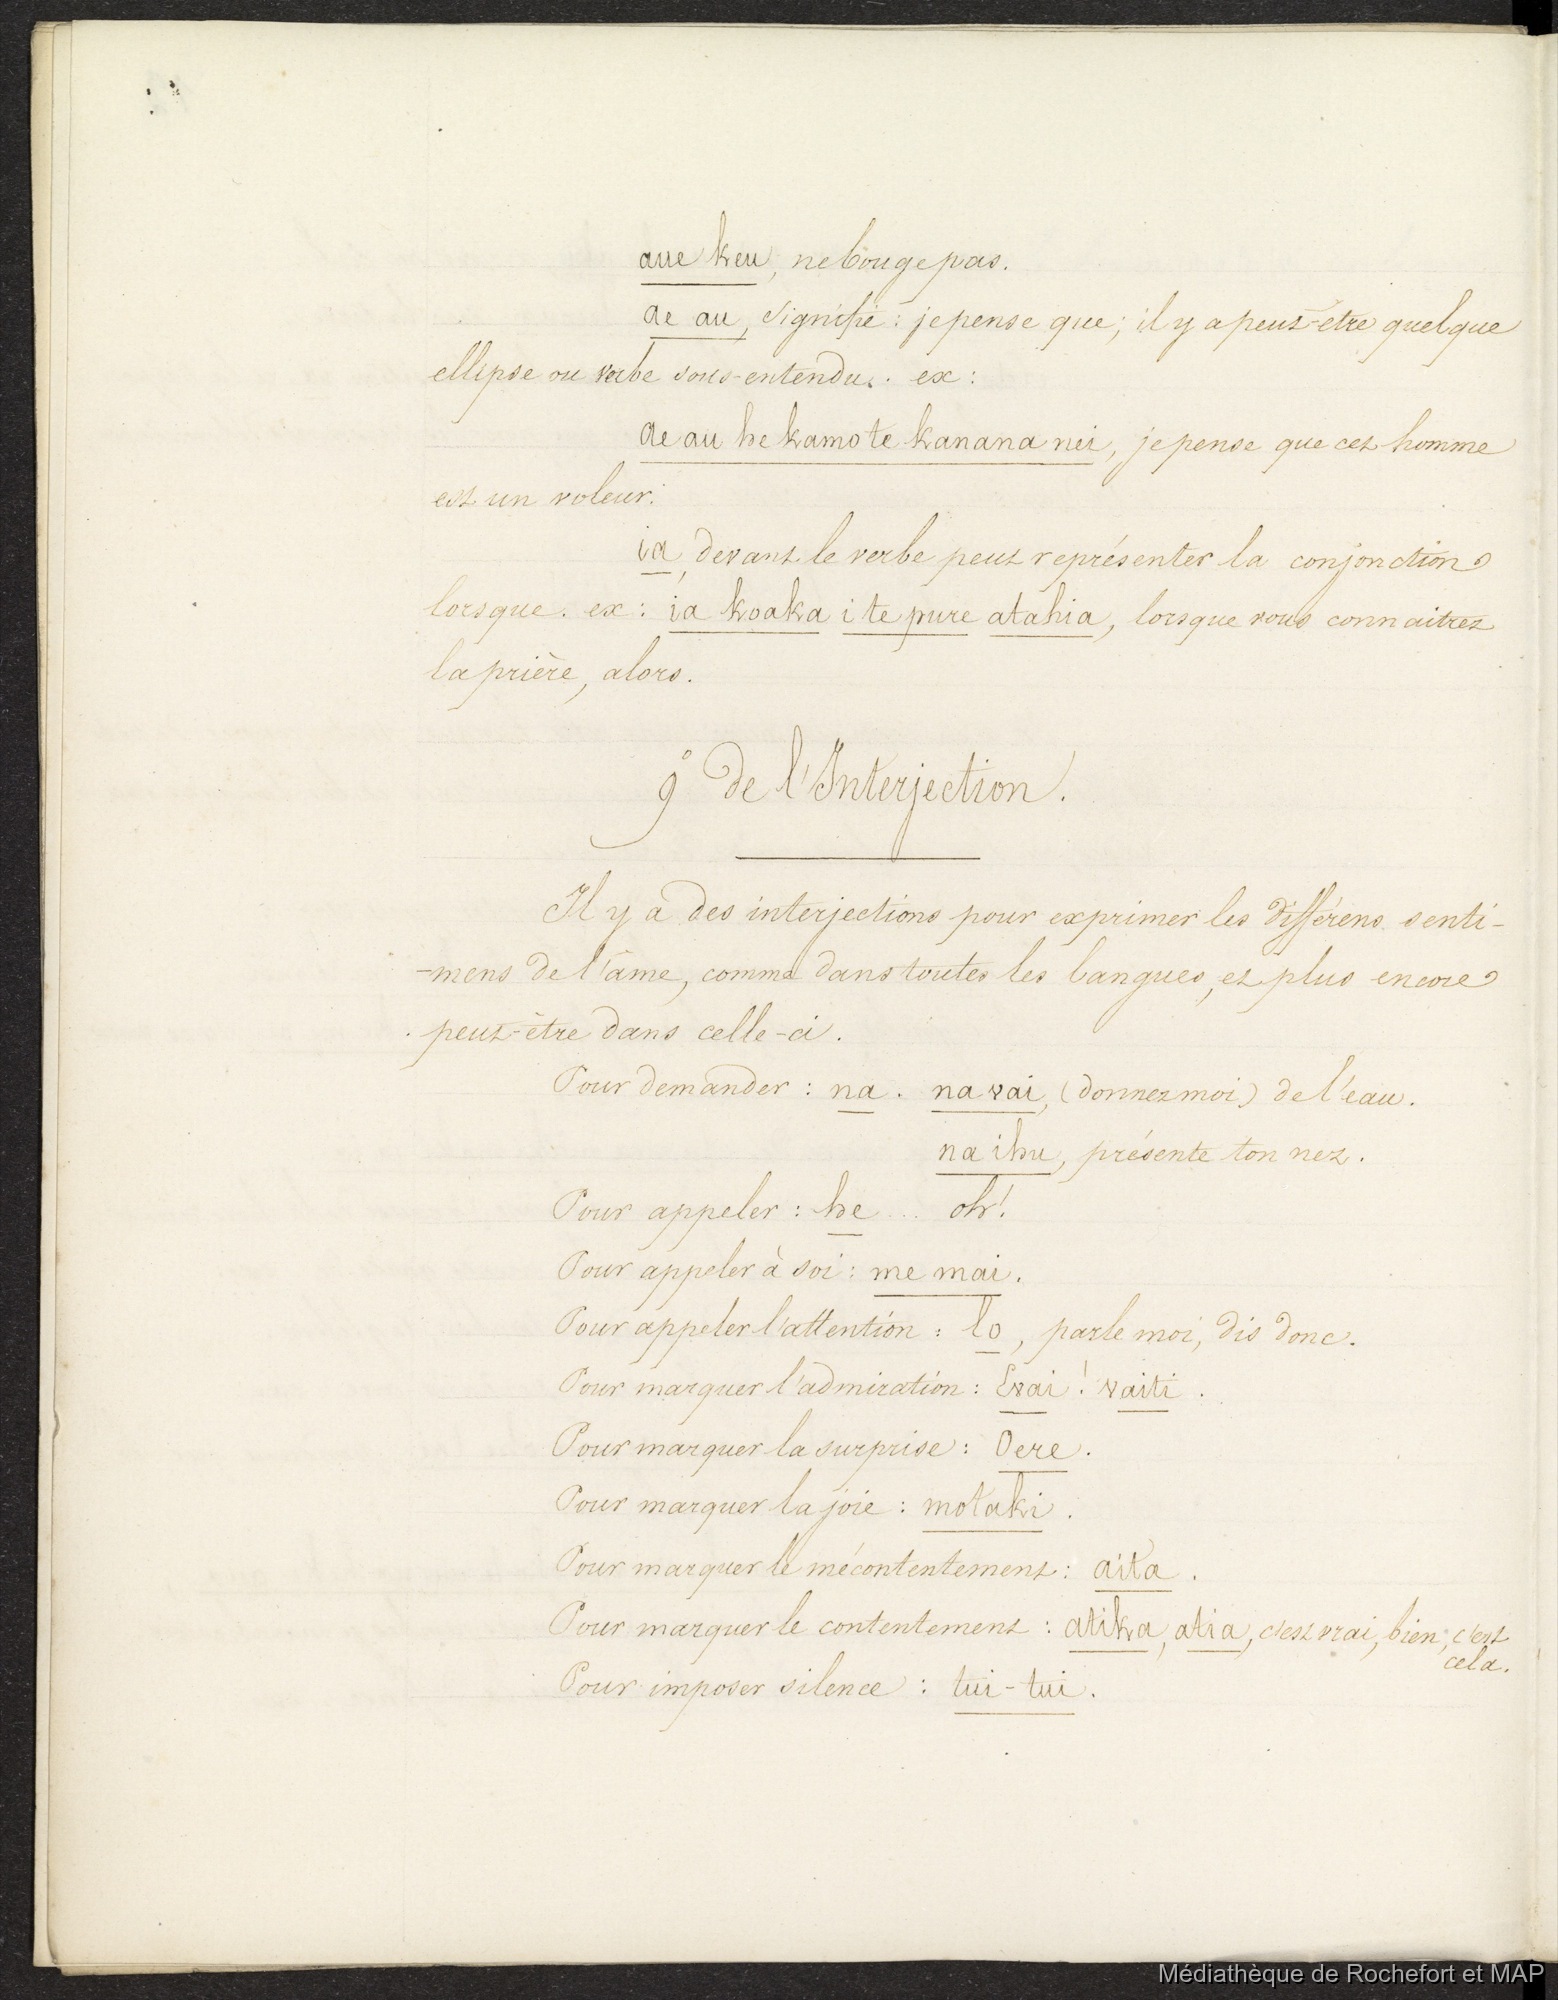 aue keu, ne bouge pas.
ae au, signifie : je pense que ; il y a peut-être quelque
ellipse ou verbe sous-entendu. ex :
ae au he kamo te kanana nei, je pense que cet homme
est un voleur.
ia, devant le verbe peut représenter la conjonction
lorsque. ex : ia koaka i te pure atahia, lorsque vous connaitrez
la prière, alors.
9° De l'Interjection.
Il y a des interjections pour exprimer les différens senti-
-mens de l'âme, comme dans toutes les langues, et plus encore
peut-être dans celle-ci.
Pour demander : na. na vai, (donnez moi) de l'eau.
na ihu, présente ton nez.
Pour appeler : he ... oh !
Pour appeler à soi : me mai.
Pour appeler l'attention : lo, parle moi, dis donc.
Pour marquer l'admiration : Evai ! vaiti.
Pour marquer la surprise : Oere.
Pour marquer la joie : motaki.
Pour marquer le mécontentement : aita.
Pour marquer le contentement : atika, atia, c'est vrai, bien, c'est
cela.
Pour imposer silence : tui-tui.
Médiathèque de Rochefort et MAP